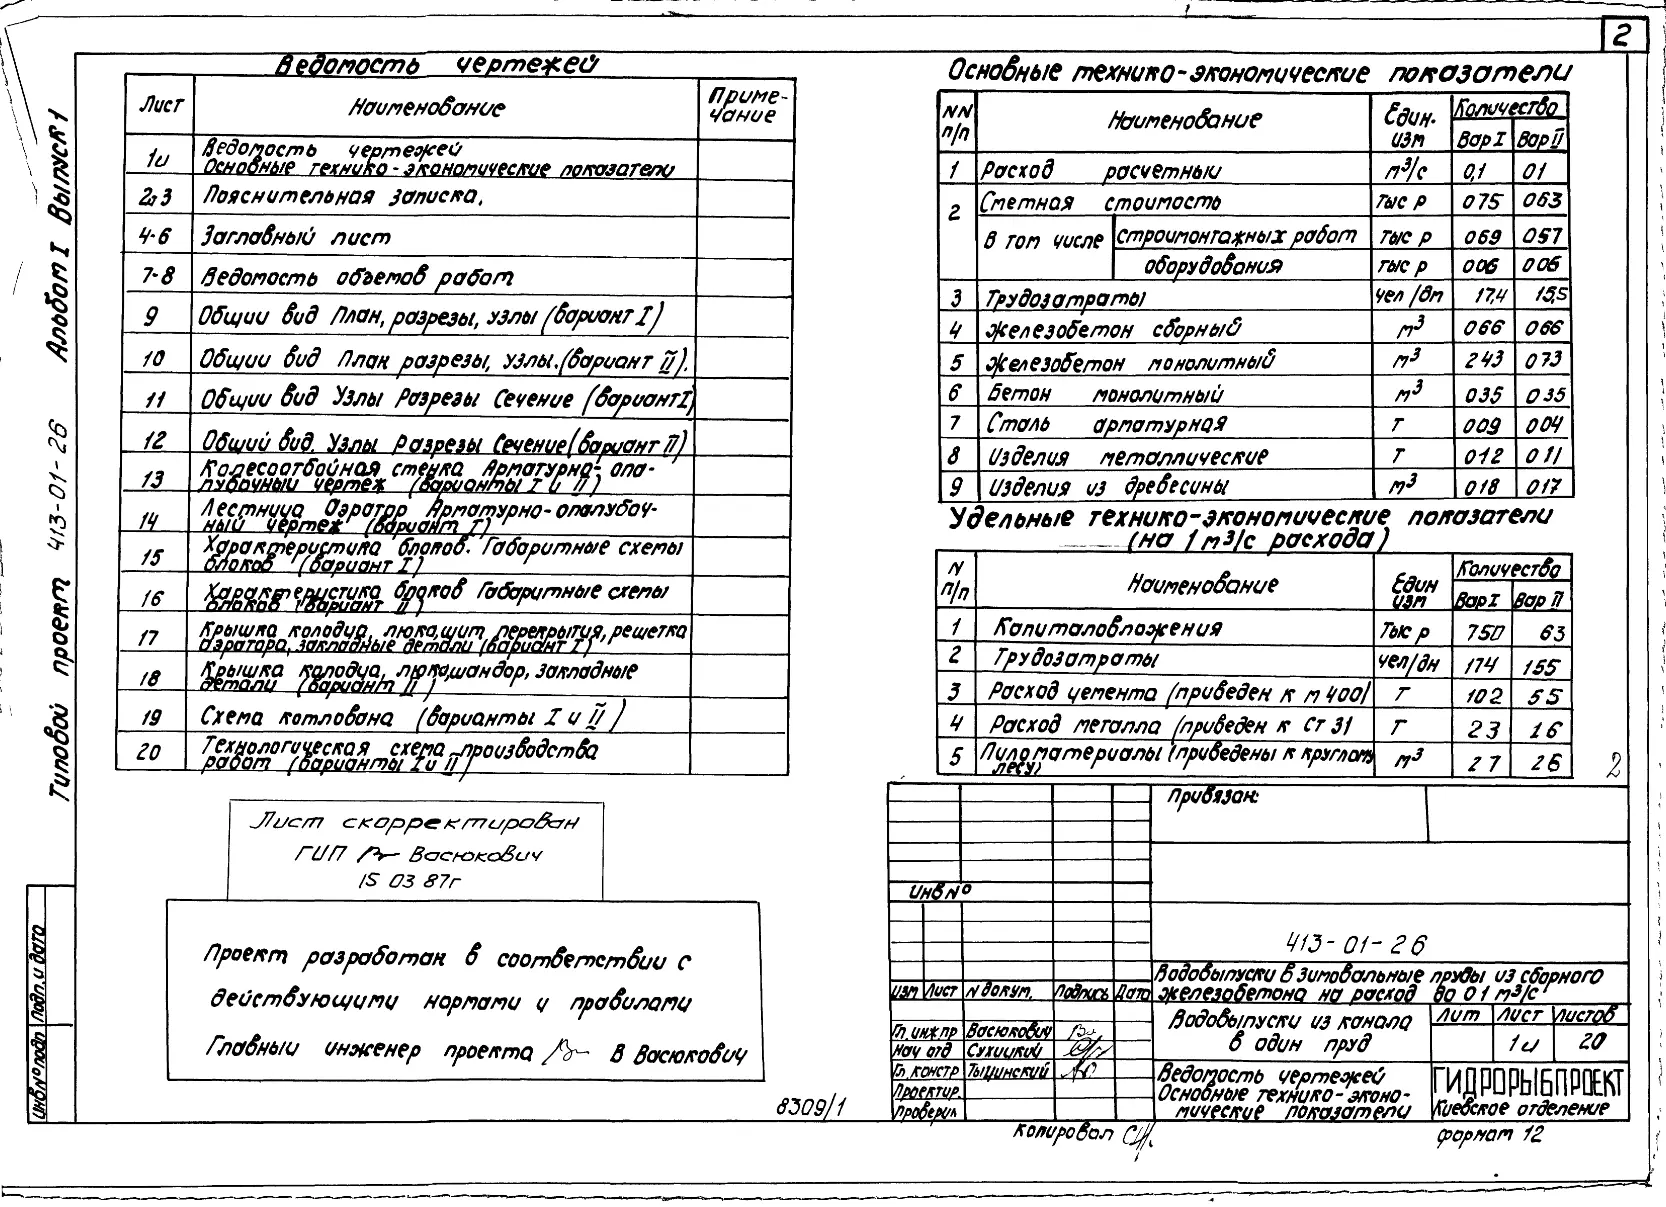 2
Типовой проект 413-01-26 Альбом I Выпуск 1
Ведомость чертежей
Лист Наименование Примечание
1и Ведомость чертежей
Основные технико-экономические показатели
2,3 Пояснительная записка.
4-6 Заглавный лист
7-8 Ведомость объемов работ
9 Общий вид План, разрезы, узлы (вариант I)
10 Общий вид План разрезы, узлы. (вариант II).
11 Общий вид Узлы Разрезы Сечение (вариант I)
12 Общий вид. Узлы Разрезы Сечение (вариант II)
13 Колесоотбойная стенка Арматурно-опа-
лубочный чертеж (варианты I и II)
14 Лестница Аэратор Арматурно-опалубоч-
ный чертеж (вариант I)
15 Характеристика блоков. Габаритные схемы
блоков (вариант I)
16 Характеристика блоков Габаритные схемы
блоков (вариант II)
17 Крышка колодца, люка, щит перекрытия, решетка
аэратора, закладные детали (вариант I)
18 Крышка колодца, люка, шандор, закладные
детали (вариант II)
19 Схема котлована (варианты I и II)
20 Технологическая схема производства
работ (варианты I и II)
Основные технико-экономические показатели
NN п/п Наименование Един. изм Количество
Вар I Вар II
1 Расход расчетный м³/с 0,1 01
2 Сметная стоимость тыс р 075 063
в том числе строимонтажных работ тыс р 069 057
оборудования тыс р 006 006
3 Трудозатраты чел/дн 17,4 15,5
4 Железобетон сборный м³ 066 066
5 Железобетон монолитный м³ 243 073
6 Бетон монолитный м³ 035 035
7 Сталь арматурная т 009 004
8 Изделия металлические т 012 011
9 Изделия из древесины м³ 018 017
Удельные технико-экономические показатели
(на 1 м³/с расхода)
N п/п Наименование Един изм Количество
Вар I Вар II
1 Капиталовложения Тыс р 750 63
2 Трудозатраты чел/дн 174 155
3 Расход цемента (приведен к м 400) Т 102 55
4 Расход металла (приведен к Ст 3) Т 23 16
5 Пиломатериалы (приведены к круглому м³ 27 26
лесу)
2
Лист скорректирован
ГИП Васюкович
15 03 87г
Проект разработан в соответствии с
действующими нормами и правилами
Главный инженер проекта В Васюкович
8309/1
Привязан:
Инв №
413-01-26
Водовыпуски в зимовальные пруды из сборного
железобетона на расход до 01 м³/с
Изм Лист N докум. Подпись Дата
Гл. инж пр Васюкович
Нач отд Сухицкий
Гл. констр Тыцинский
Проектир.
Проверил
Водовыпуски из канала
в один пруд
Лит Лист Листов
1и 20
Ведомость чертежей
Основные технико-эконо-
мические показатели
ГИДРОРЫБПРОЕКТ
Киевское отделение
Инв № подл Подп. и дата
Копировал
формат 12